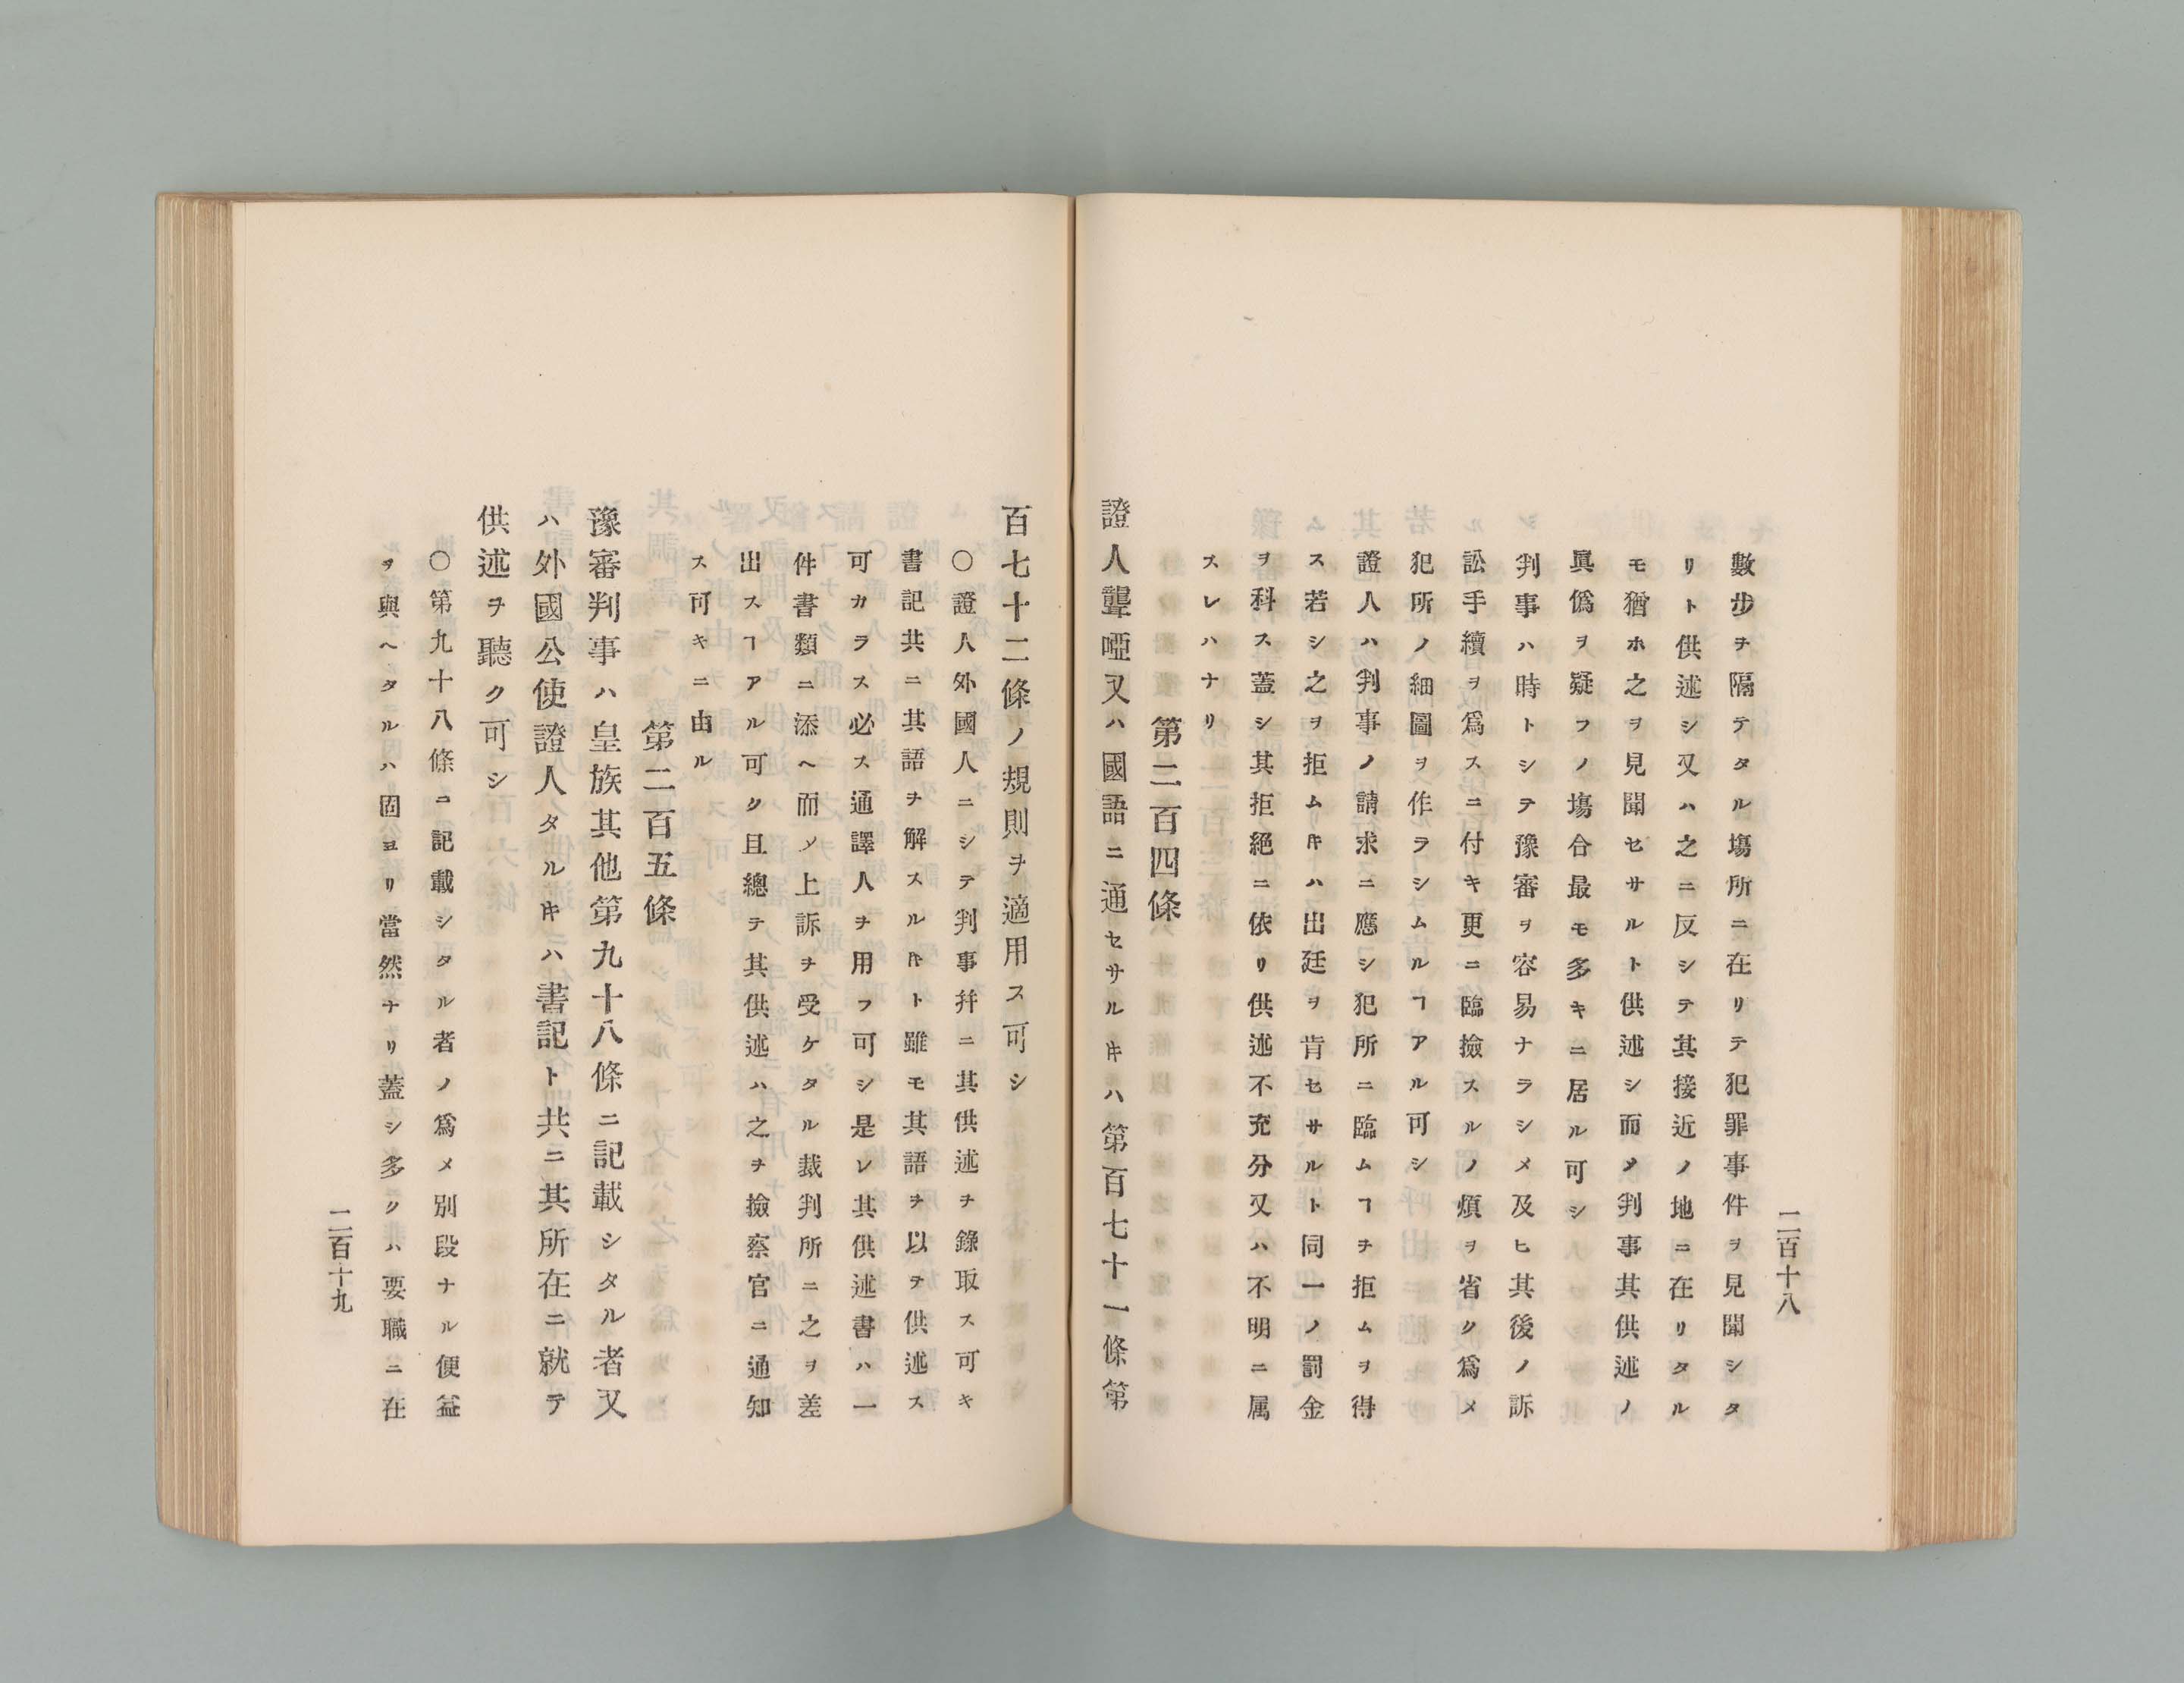 二百十八
數步ヲ隔テタル塲所ニ在リテ犯罪事件ヲ見聞シタ
リト供述シ又ハ之ニ反シテ其接近ノ地ニ在リタル
モ猶ホ之ヲ見聞セサルト供述シ而メ判事其供述ノ
眞僞ヲ疑フノ塲合最モ多キニ居ル可シ
判事ハ時トシテ豫審ヲ容易ナラシメ及ヒ其後ノ訴
訟手續ヲ爲スニ付キ更ニ臨撿スルノ煩ヲ省ク爲メ
犯所ノ細圖ヲ作ラシムルヿアル可シ
證人ハ判事ノ請求ニ應シ犯所ニ臨ムヿヲ拒ムヲ得
ス若シ之ヲ拒ムリ𪜈ハ出廷ヲ肯セサルト同一ノ罰金
ヲ科ス蓋シ其拒絕ニ依リ供述不充分又ハ不明ニ属
スレハナリ
第二百四條
證人聾啞又ハ國語ニ通セサルキハ第百七十一條第
百七十二條ノ規則ヲ適用ス可シ
〇證人外國人ニシテ判事幷ニ其供述ヲ錄取ス可キ
書記共ニ其語ヲ解スル𪜈ト雖モ其語ヲ以テ供述ス
可カラス必ス通譯人ヲ用フ可シ是レ其供述書ハ一
件書類ニ添ヘ而メ上訴ヲ受ケタル裁判所ニ之ヲ差
出スヿアル可ク且總テ其供述ハ之ヲ撿察官ニ通知
ス可キニ由ル
第二百五條
豫審判事ハ皇族其他第九十八條ニ記載シタル者又
ハ外國公使證人タルキハ書記ト共ニ其所在ニ就テ
供述ヲ聽ク可シ
〇第九十八條ニ記載シタル者ノ爲メ別段ナル便益
ヲ與ヘタルハ固ヨリ當然ナリ蓋シ多クハ要職ニ在
二百十九